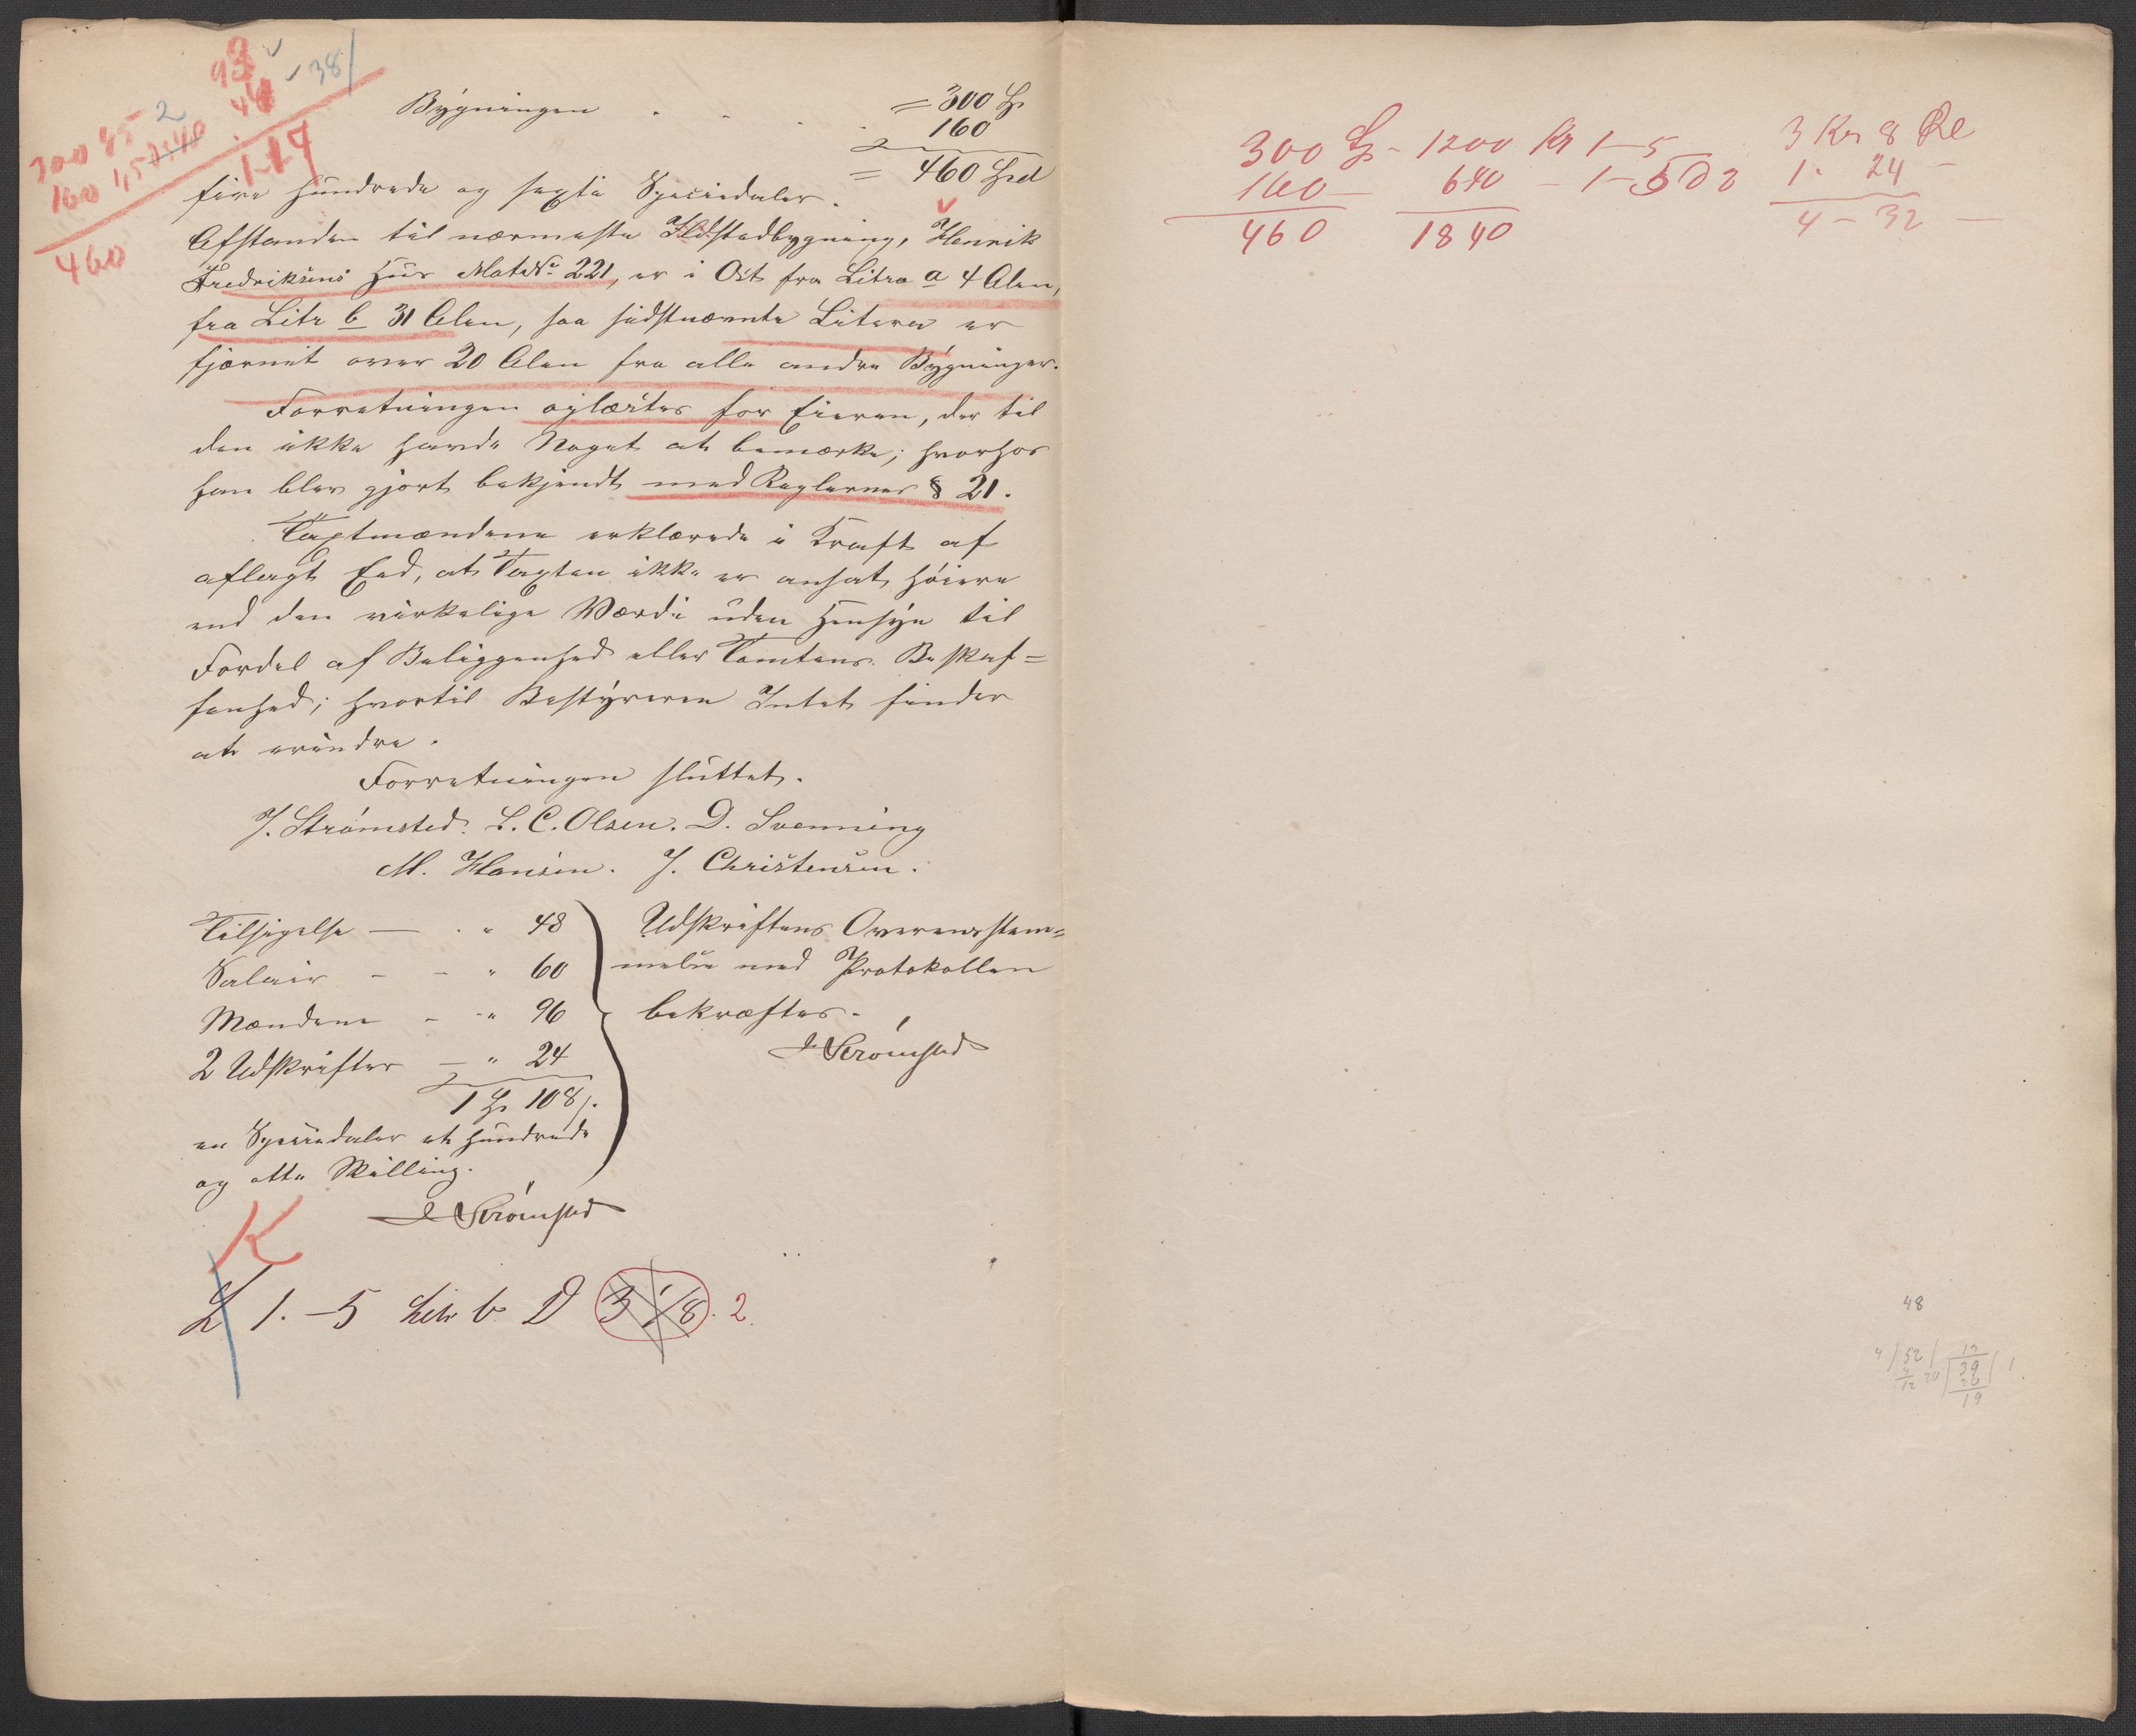 98
46
1-14
38
300 45 2
160 1,5
460
Bygningen . . . . = 300 Sp
160
= 460 Spd
fire hundrede og sexti Speciedaler.
Afstanden til nærmeste Ildstedbygning, Henrik
Fredriksens Huus Mat№ 221, er i Ost fra Litra a 4 Alen,
fra Litr b 31 Alen, saa sidstnævnte Litera er
fjærnet over 20 Alen fra alle andre Bygninger.
Forretningen oplæstes for Eieren, der til
den ikke havde Noget at bemærke; hvorhos
han blev gjort bekjendt med Reglernes § 21.
Taxtmændene erklærede i Kraft af
aflagt Eed, at Taxten ikke er ansat høiere
end den virkelige Værdi uden Hensyn til
Fordel af Beliggenhed eller Tomtens Beskaf=
fenhed; hvortil Bestyreren Intet finder
at erindre.
Forretningen sluttet.
J. Strømsted. L. C. Olsen. D. Svenning
M. Hansen. J. Christensen.
Tilsigelse — . " 48
Salair - - " 60
Mændene - - " 96
2 Udskrifter — " 24
1 Sp 108 s.
en Speciedaler et hundrede
og otte Skilling.
J Strømsted
Udskriftens Overensstem=
melse med Protokollen
bekræftes.
J Strømsted
K
L 1.-5 Litr b D 3 1/8. 2.
300 Sp - 1200 Kr 1-5 3 Kr 8 Øre
160 — 640 - 1-5 D 2 1. 24 —
460 1840 4 - 32 —
48
4/52/ 13
12 20 39 1
19